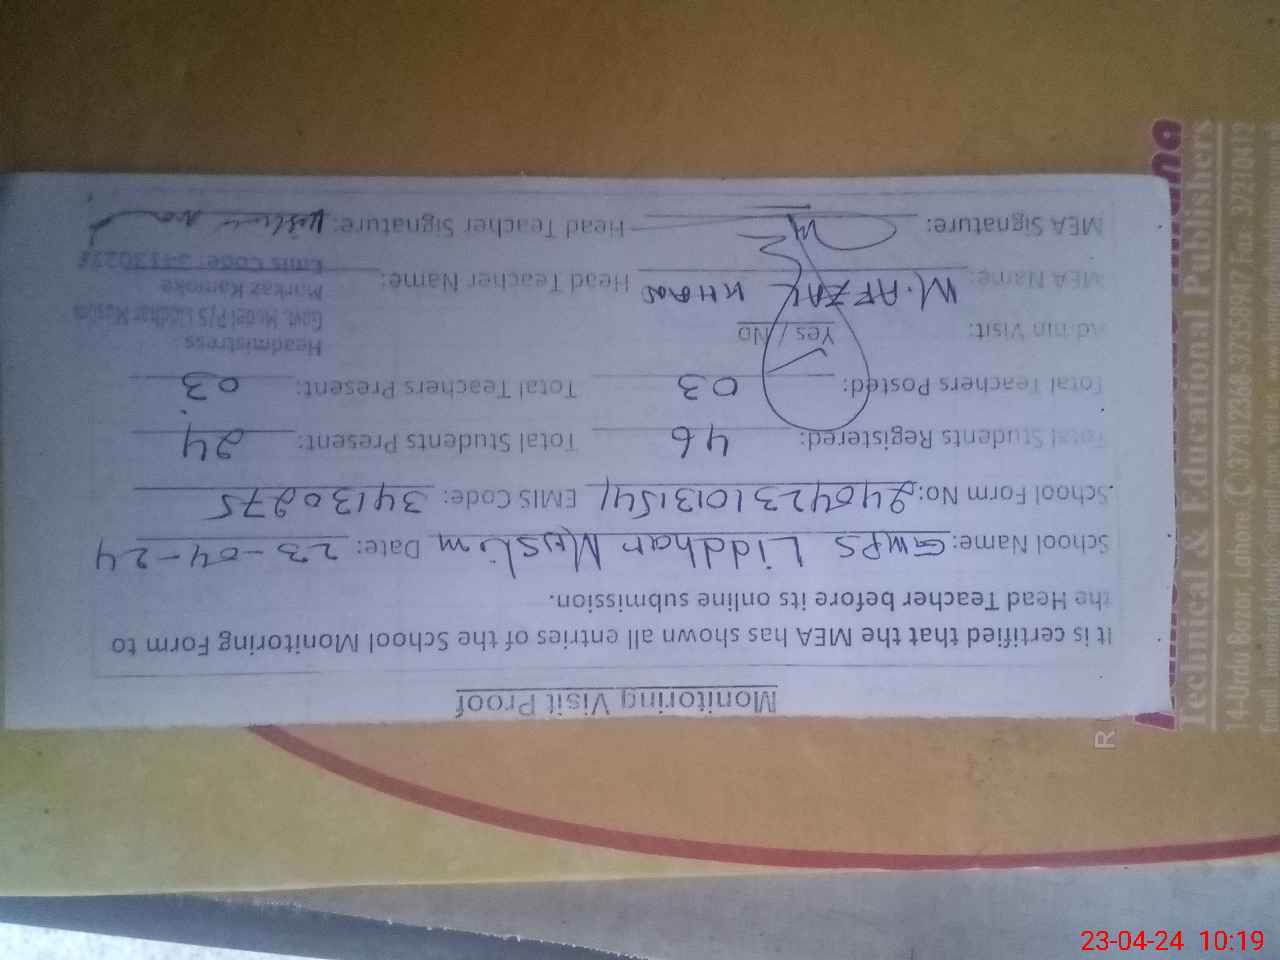 Monitoring Visit Proof
It is certified that the MEA has shown all entries of the School Monitoring Form to
the Head Teacher before its online submission.
School Name: GMPS Liddhar Muslim Date: 23-04-24
School Form No: 24042310131541 EMIS Code: 34130275
Total Students Registered: 46 Total Students Present: 24
Total Teachers Posted: 03 Total Teachers Present: 03
Admin Visit: Yes / No
Headmistress
Govt. Model P/S Liddhar Muslim
MEA Name: M. AFZAL KHAN Head Teacher Name:
Markaz Kamoke
Emis Code:
MEA Signature: Head Teacher Signature:
Technical & Educational Publishers
14-Urdu Bazar, Lahore
Fax: 37210412
R
23-04-24 10:19